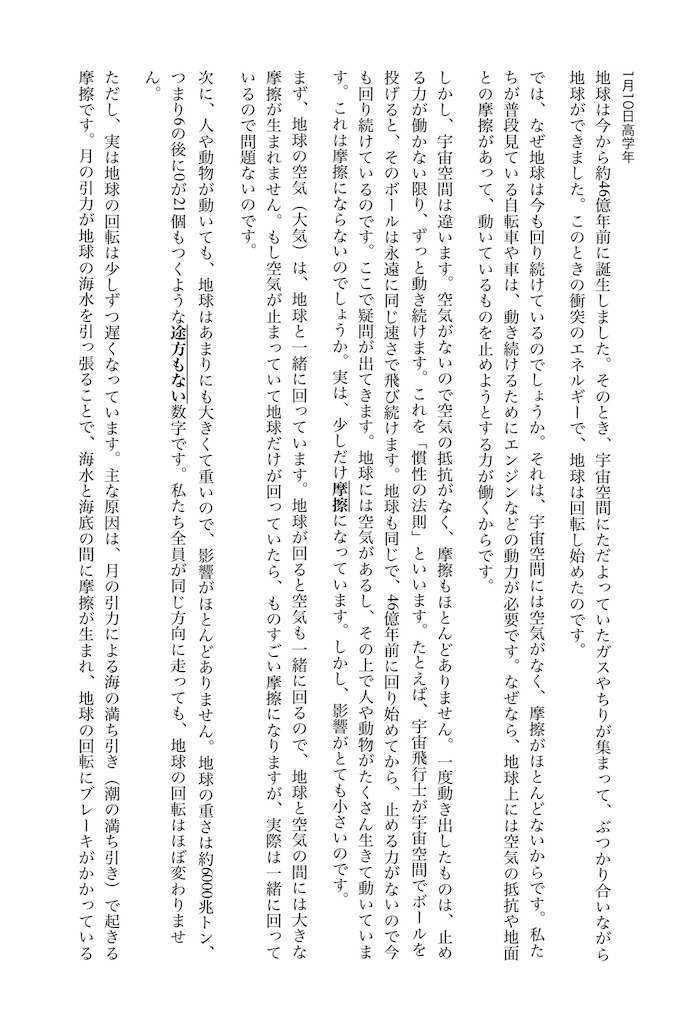 1月10日高学年
地球は今から約46億年前に誕生しました。そのとき、宇宙空間にただよっていたガスやちりが集まって、ぶつかり合いながら
地球ができました。このときの衝突のエネルギーで、地球は回転し始めたのです。
では、なぜ地球は今も回り続けているのでしょうか。それは、宇宙空間には空気がなく、摩擦がほとんどないからです。私た
ちが普段見ている自転車や車は、動き続けるためにエンジンなどの動力が必要です。なぜなら、地球上には空気の抵抗や地面
との摩擦があって、動いているものを止めようとする力が働くからです。
しかし、宇宙空間は違います。空気がないので空気の抵抗がなく、摩擦もほとんどありません。一度動き出したものは、止め
る力が働かない限り、ずっと動き続けます。これを「慣性の法則」といいます。たとえば、宇宙飛行士が宇宙空間でボールを
投げると、そのボールは永遠に同じ速さで飛び続けます。地球も同じで、46億年前に回り始めてから、止める力がないので今
も回り続けているのです。ここで疑問が出てきます。地球には空気があるし、その上で人や動物がたくさん生きて動いていま
す。これは摩擦にならないのでしょうか。実は、少しだけ摩擦になっています。しかし、影響がとても小さいのです。
まず、地球の空気（大気）は、地球と一緒に回っています。地球が回ると空気も一緒に回るので、地球と空気の間には大きな
摩擦が生まれません。もし空気が止まっていて地球だけが回っていたら、ものすごい摩擦になりますが、実際は一緒に回って
いるので問題ないのです。
次に、人や動物が動いても、地球はあまりにも大きくて重いので、影響がほとんどありません。地球の重さは約6000兆トン、
つまり6の後に0が21個もつくような途方もない数字です。私たち全員が同じ方向に走っても、地球の回転はほぼ変わりませ
ん。
ただし、実は地球の回転は少しずつ遅くなっています。主な原因は、月の引力による海の満ち引き（潮の満ち引き）で起きる
摩擦です。月の引力が地球の海水を引っ張ることで、海水と海底の間に摩擦が生まれ、地球の回転にブレーキがかかっている